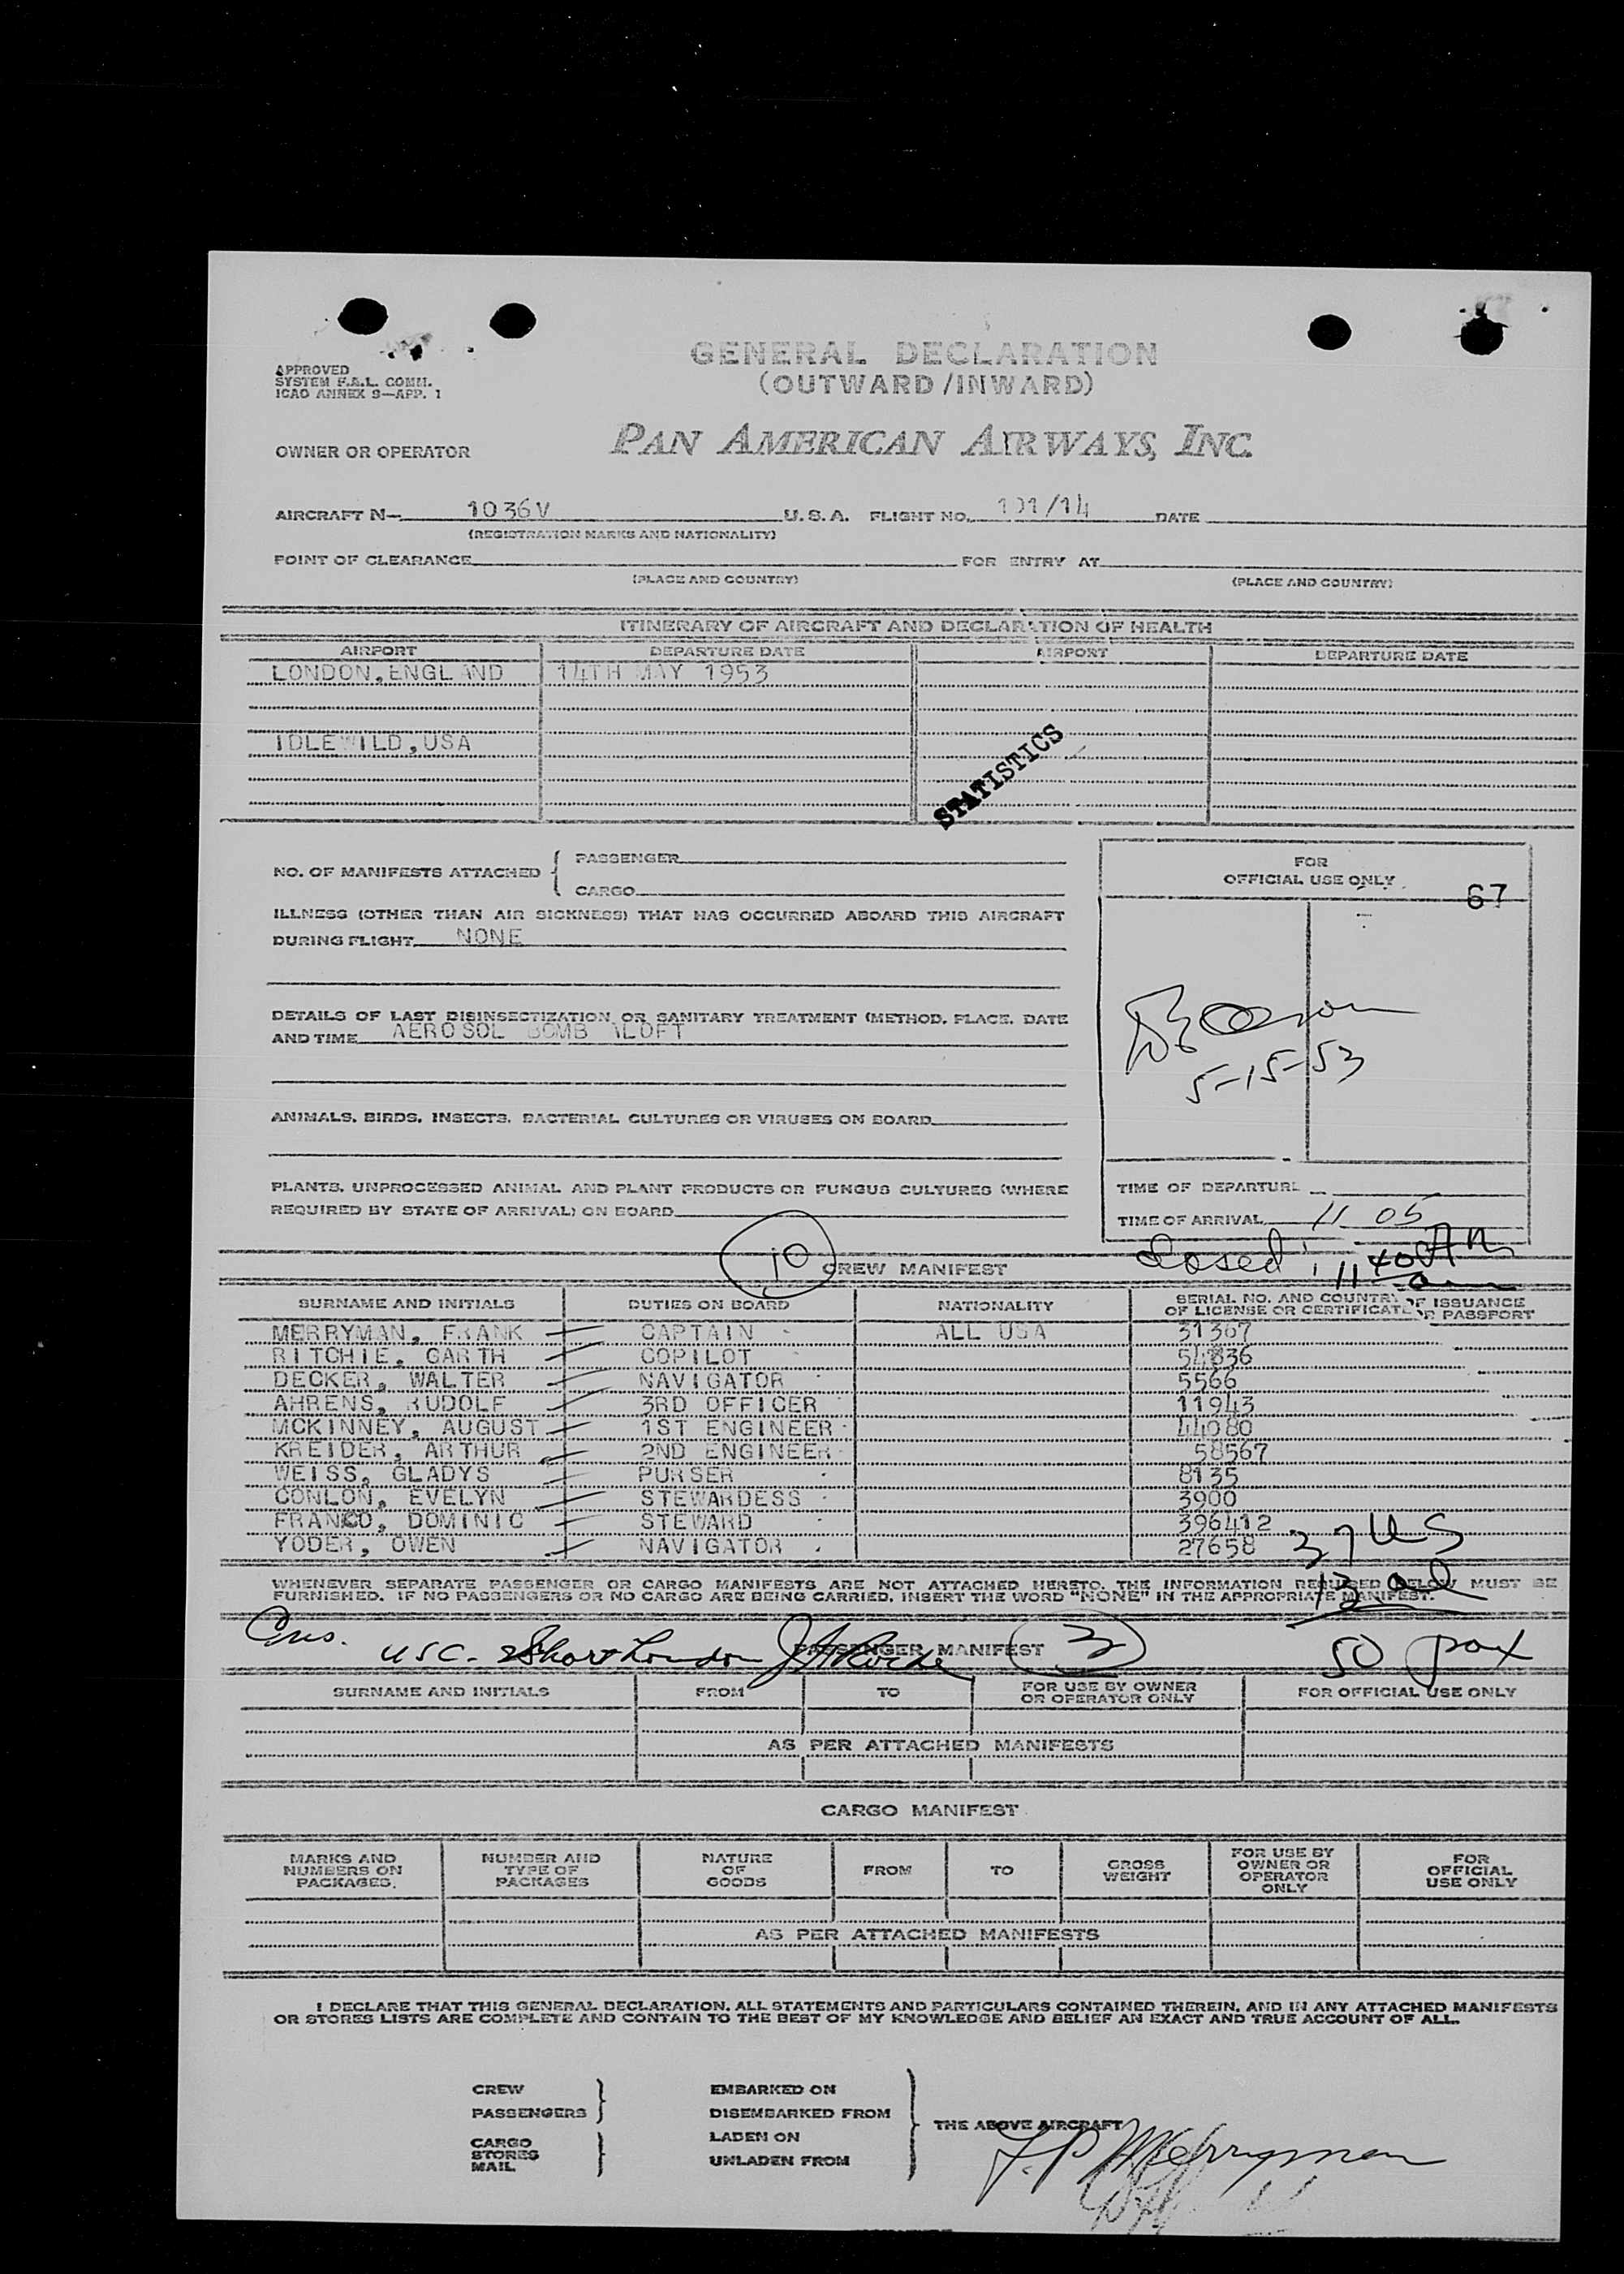 GENERAL DECLARATION
(OUTWARD/INWARD)
APPROVED
SYSTEM F.A.L. COMM.
ICAO ANNEX 9—APP. 1
OWNER OR OPERATOR
PAN AMERICAN AIRWAYS, INC.
AIRCRAFT N— 1036V U.S.A. FLIGHT NO. 101/14 DATE
(REGISTRATION MARKS AND NATIONALITY)
POINT OF CLEARANCE FOR ENTRY AT
(PLACE AND COUNTRY) (PLACE AND COUNTRY)
ITINERARY OF AIRCRAFT AND DECLARATION OF HEALTH
AIRPORT DEPARTURE DATE AIRPORT DEPARTURE DATE
LONDON, ENGLAND 14TH MAY 1953
IDLEWILD, USA
STATISTICS
NO. OF MANIFESTS ATTACHED { PASSENGER
CARGO
FOR
OFFICIAL USE ONLY
67
ILLNESS (OTHER THAN AIR SICKNESS) THAT HAS OCCURRED ABOARD THIS AIRCRAFT
DURING FLIGHT NONE
DETAILS OF LAST DISINSECTIZATION OR SANITARY TREATMENT (METHOD, PLACE, DATE
AND TIME AEROSOL BOMB ALOFT
5-15-53
ANIMALS, BIRDS, INSECTS, BACTERIAL CULTURES OR VIRUSES ON BOARD
PLANTS, UNPROCESSED ANIMAL AND PLANT PRODUCTS OR FUNGUS CULTURES (WHERE
REQUIRED BY STATE OF ARRIVAL) ON BOARD
TIME OF DEPARTURE
TIME OF ARRIVAL 11 05
Closed: 11 40 AM
10
CREW MANIFEST
SURNAME AND INITIALS DUTIES ON BOARD NATIONALITY SERIAL NO. AND COUNTRY OF ISSUANCE
OF LICENSE OR CERTIFICATE OR PASSPORT
MERRYMAN, FRANK CAPTAIN ALL USA 31367
RITCHIE, GARTH COPILOT 54836
DECKER, WALTER NAVIGATOR 5566
AHRENS, RUDOLF 3RD OFFICER 11943
MCKINNEY, AUGUST 1ST ENGINEER 44080
KREIDER, ARTHUR 2ND ENGINEER 58567
WEISS, GLADYS PURSER 8135
CONLON, EVELYN STEWARDESS 3900
FRANCO, DOMINIC STEWARD 396412
YODER, OWEN NAVIGATOR 27658
37 US
13 al
50 pax
WHENEVER SEPARATE PASSENGER OR CARGO MANIFESTS ARE NOT ATTACHED HERETO, THE INFORMATION REQUIRED BELOW MUST BE
FURNISHED. IF NO PASSENGERS OR NO CARGO ARE BEING CARRIED, INSERT THE WORD "NONE" IN THE APPROPRIATE MANIFEST.
USC. Short London
PASSENGER MANIFEST
3
SURNAME AND INITIALS FROM TO FOR USE BY OWNER
OR OPERATOR ONLY FOR OFFICIAL USE ONLY
AS PER ATTACHED MANIFESTS
CARGO MANIFEST
MARKS AND
NUMBERS ON
PACKAGES.
NUMBER AND
TYPE OF
PACKAGES
NATURE
OF
GOODS
FROM
TO
GROSS
WEIGHT
FOR USE BY
OWNER OR
OPERATOR
ONLY
FOR
OFFICIAL
USE ONLY
AS PER ATTACHED MANIFESTS
I DECLARE THAT THIS GENERAL DECLARATION, ALL STATEMENTS AND PARTICULARS CONTAINED THEREIN, AND IN ANY ATTACHED MANIFESTS
OR STORES LISTS ARE COMPLETE AND CONTAIN TO THE BEST OF MY KNOWLEDGE AND BELIEF AN EXACT AND TRUE ACCOUNT OF ALL.
CREW
PASSENGERS
CARGO
STORES
MAIL
EMBARKED ON
DISEMBARKED FROM
LADEN ON
UNLADEN FROM
THE ABOVE AIRCRAFT
F.P. Merryman